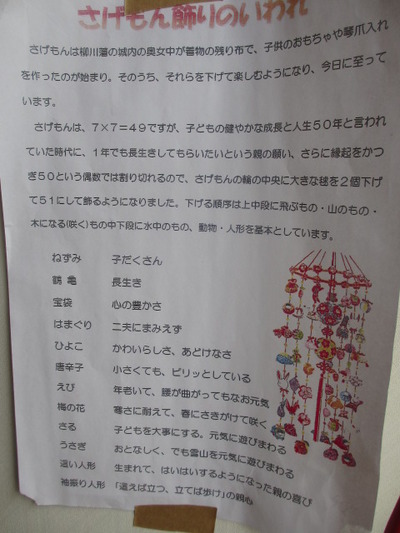 さげもん飾りのいわれ
さげもんは柳川藩の城内の奥女中が着物の残り布で、子供のおもちゃや琴爪入れ
を作ったのが始まり。そのうち、それらを下げて楽しむようになり、今日に至って
います。
さげもんは、7×7=49ですが、子どもの健やかな成長と人生50年と言われ
ていた時代に、1年でも長生きしてもらいたいという親の願い、さらに縁起をかつ
ぎ50という偶数では割り切れるので、さげもんの輪の中央に大きな毬を2個下げ
て51にして飾るようになりました。下げる順序は上中段に飛ぶもの・山のもの・
木になる(咲く)もの中下段に水中のもの、動物・人形を基本としています。
ねずみ 子だくさん
鶴亀 長生き
宝袋 心の豊かさ
はまぐり 二夫にまみえず
ひよこ かわいらしさ、あどけなさ
唐辛子 小さくても、ピリッとしている
えび 年老いて、腰が曲がってもなお元気
梅の花 寒さに耐えて、春にさきがけて咲く
さる 子どもを大事にする。元気に遊びまわる
うさぎ おとなしく、でも雪山を元気に遊びまわる
這い人形 生まれて、はいはいするようになった親の喜び
袖振り人形 「這えば立つ、立てば歩け」の親心